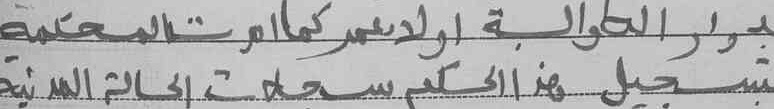 بدوار الطوالبة اولاد عمر كما امرت المحكمة
بتسجيل هذا الحكم بسجلات الحالة المدنية